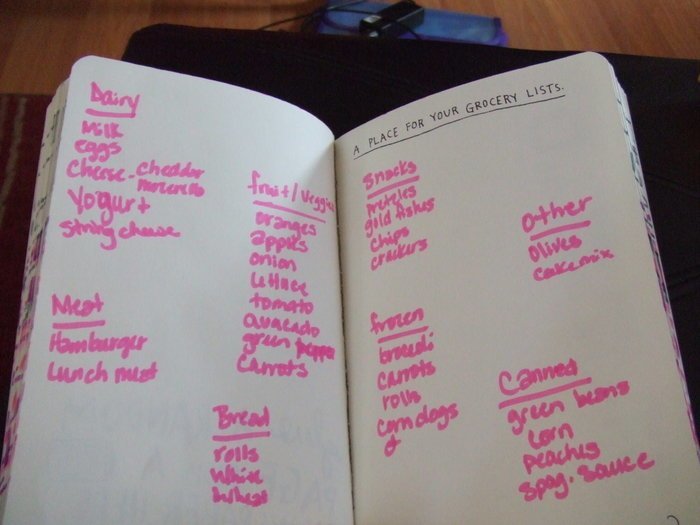 Dairy
Milk
eggs
Cheese - Cheddar
Yogurt
String cheese
Meat
Hamburger
Lunch meat
fruit/veggies
oranges
apples
onion
lettuce
tomato
avacado
green pepper
carrots
Bread
rolls
White
Wheat
A PLACE FOR YOUR GROCERY LISTS.
Snacks
preteles
gold fishes
chips
crackers
frozen
broccoli
carrots
rolls
corn dogs
Other
Olives
cake mix
Canned
green beans
corn
peaches
spag. sauce